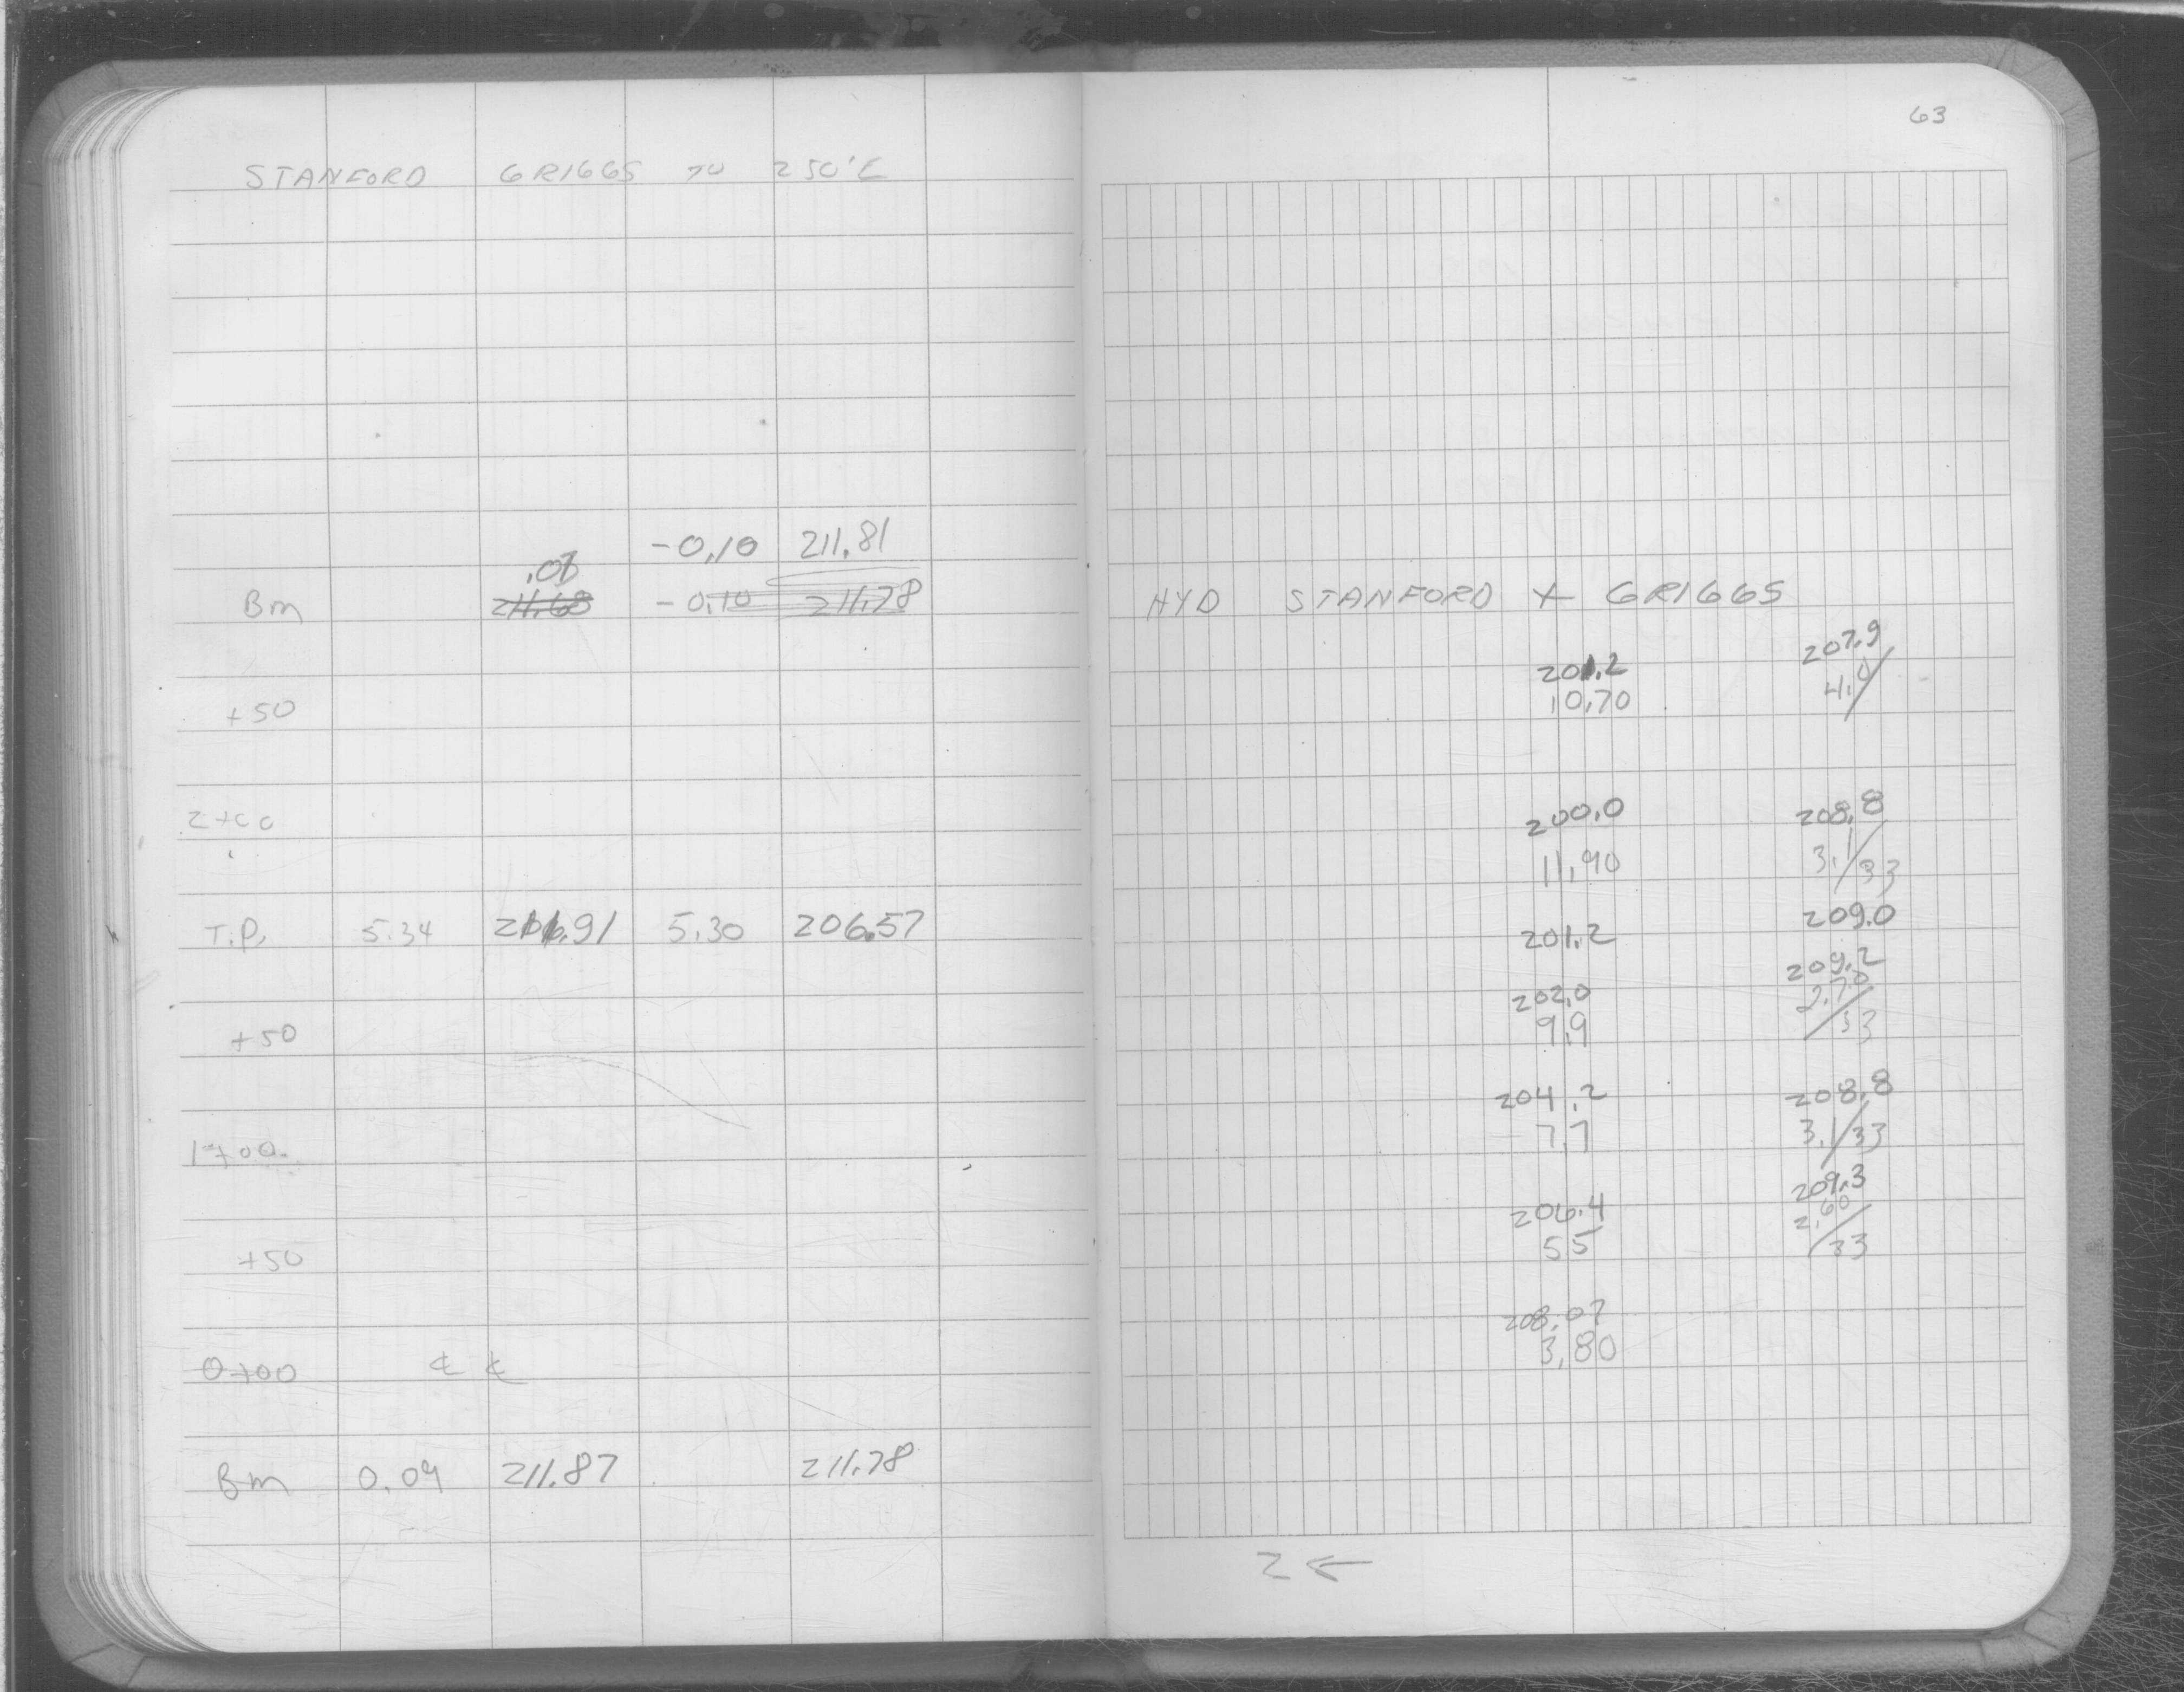 63
STANFORD GRIGGS TO 250'E
-0.10 211.81
.07
Bm 211.68 -0.10 211.78 HYD STANFORD + GRIGGS
201.2 207.9
+50 10.70 4.0/
2+00 200.0 208.8
11.90 3.1/33
T.P. 5.34 211.91 5.30 206.57 201.2 209.0
202.0 209.2
+50 9.9 2.70/33
204.2 208.8
1+00 7.7 3.1/33
206.4 209.3
+50 5.5 2.60/33
208.07
0+00 ℄ ℄ 3.80
Bm 0.09 211.87 211.78
Z ←